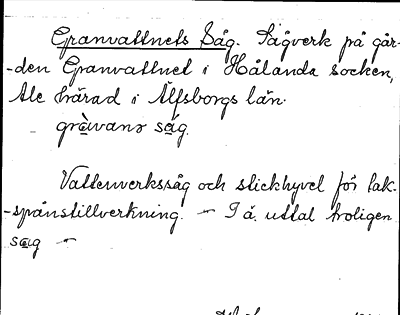 Granvattnets Såg. Sågverk på går-
-den Granvattnet i Hålanda socken,
Ale härad i Älfsborgs län.
gràvanɔ såg.
Vattenverkssåg och stickhyvel för tak-
-spånstillverkning. — I ä. uttal troligen
sag —